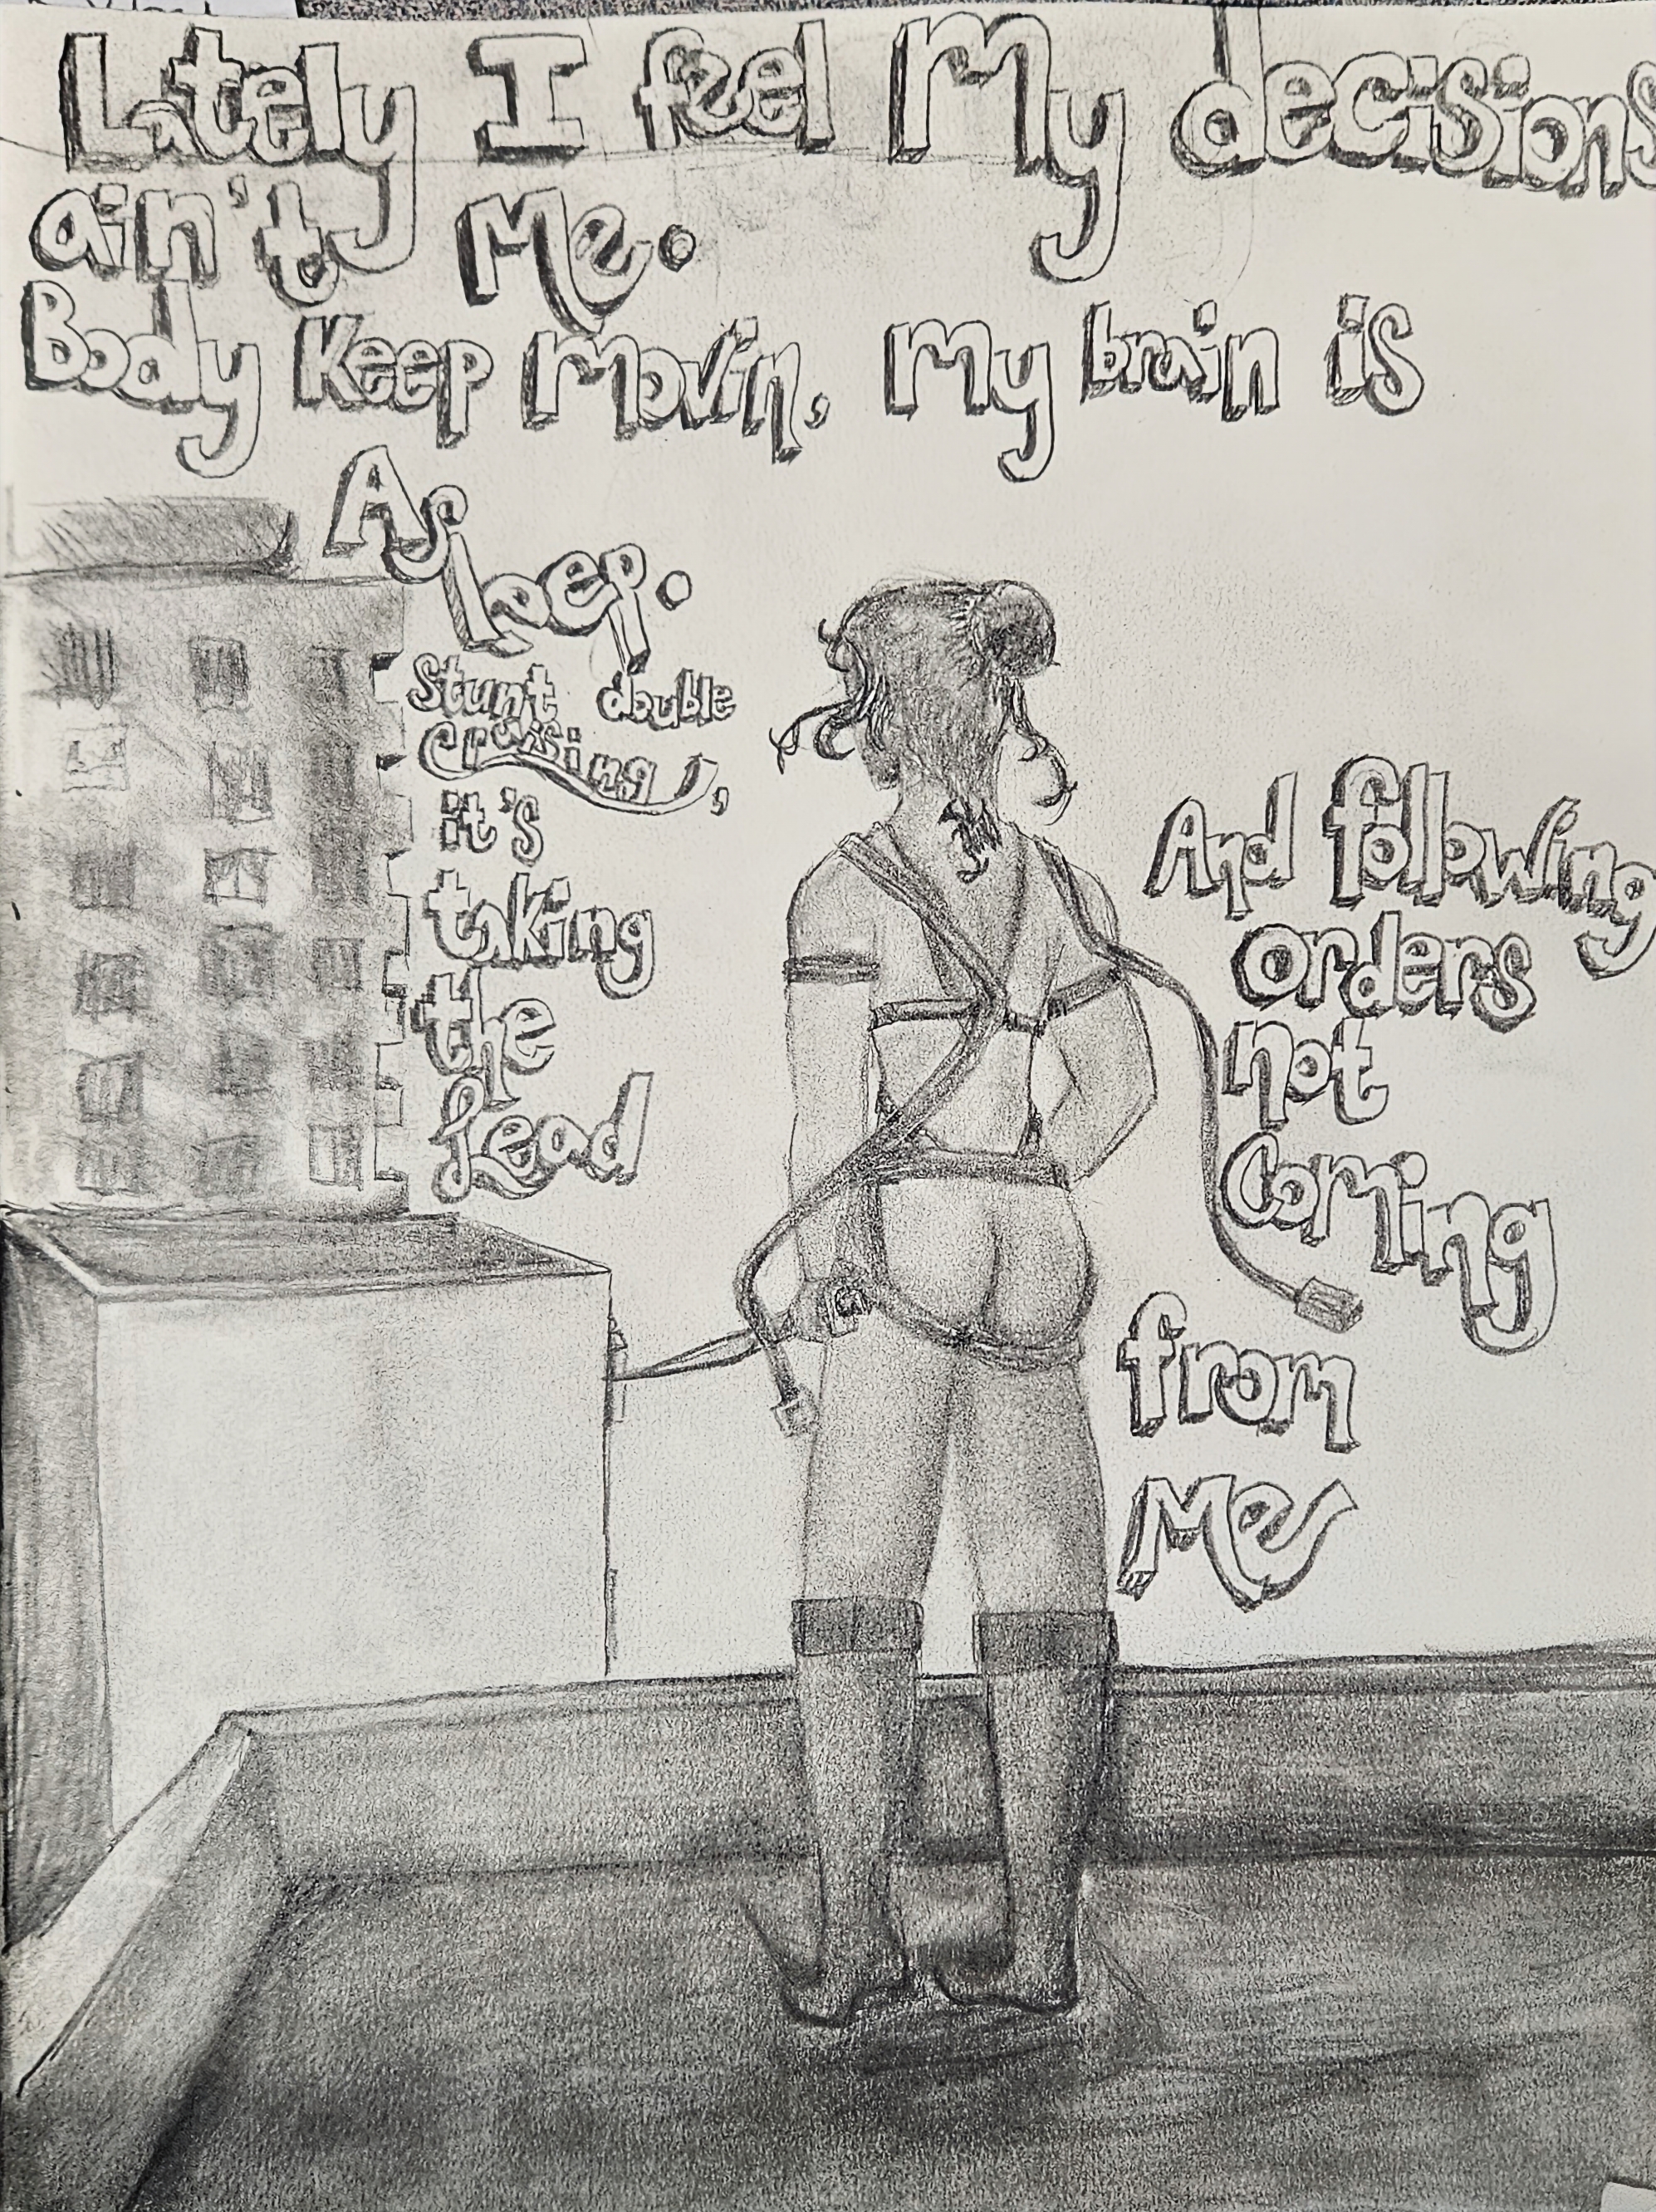 Lately I feel My decisions
ain't Me.
Body Keep Movin, My brain is
Asleep.
Stunt double
Crusing,
it's
taking
the
Lead
And following
orders
not
Coming
from
Me